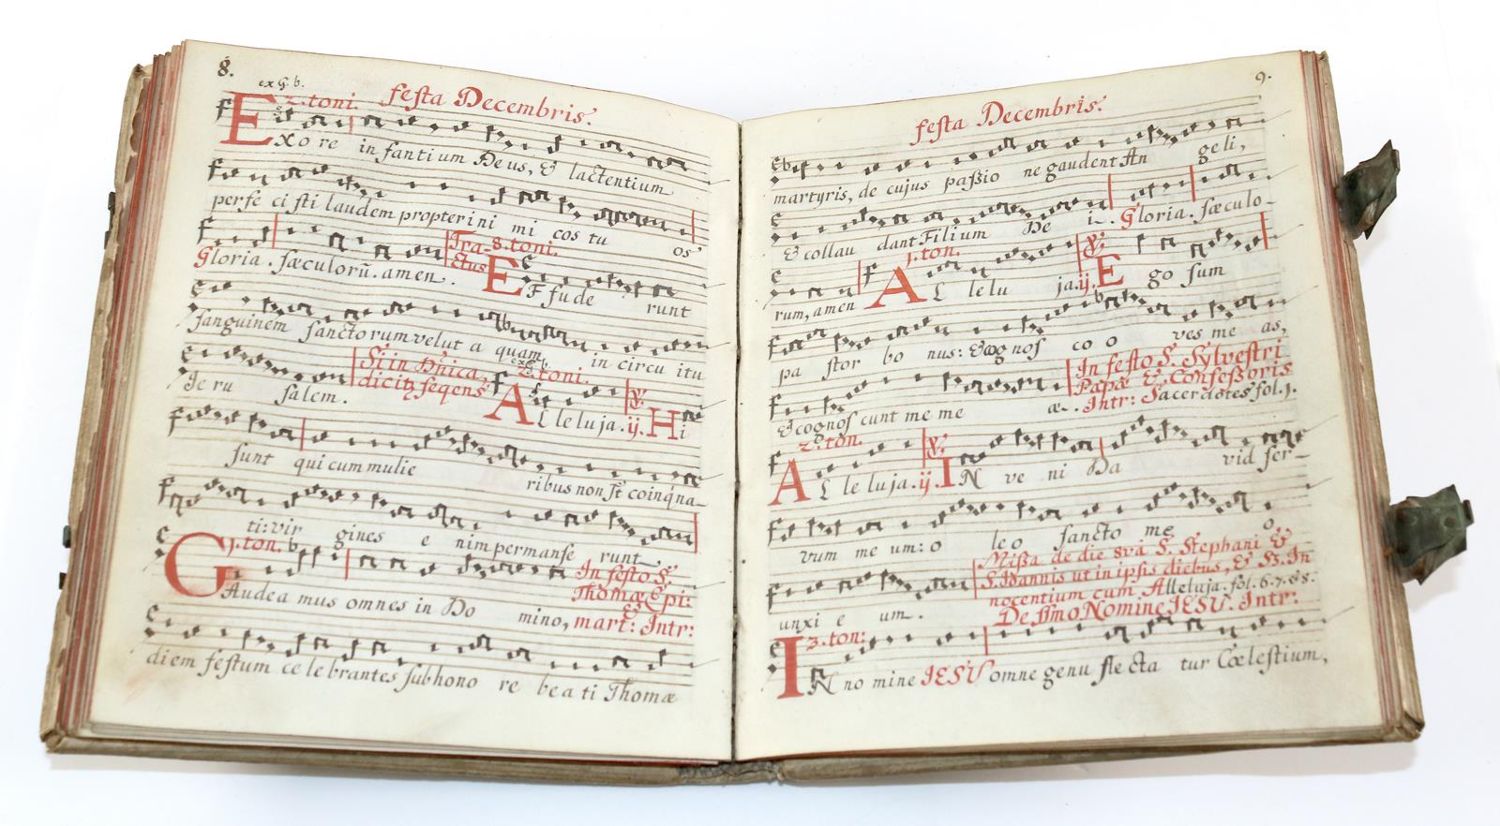 8.
ex G. b.
2. toni. festa Decembris.
Exo re in fanti um Deus, & lactentium
perfe ci sti laudem propter ini mi cos tu os
Gloria. sæculorū. amen. Tra- 8. toni.
ctus Effude runt
sanguinem sanctorum velut a quam in circu itu
Si in Dnica
dicitʒ seqens
ex G. b.
2. toni.
Ieru salem. Alleluja. ij. ℣. Hi
sunt qui cum mulie ribus non st̄ coinqna-
ti: vir gines e nim permanse runt
1. ton. In festo S.
Thomæ Epi:
&
Gaudea mus omnes in Do mino, mart: Intr:
diem festum ce le brantes sub hono re be a ti Thomæ
9.
festa Decembris.
martyris, de cujus passio ne gaudent An geli,
& collau dant Filium De i. Gloria. sæculo-
1. ton. ℣.
rum, amen Al le lu ja. ij. Ego sum
pa stor bo nus: & cognos co o ves me as,
In festo S. Sylvestri
Papæ & Confessoris
& cognos cunt me me æ. Intr: Sacerdotes fol. 1.
2. ton. ℣.
Al le lu ja. ij. IN ve ni Da vid ser-
vum me um: o le o sancto me o
Missa de die svā S. Stephani &
S. Ioannis ut in ipsis diebus, & SS. In
nocentium cum Alleluja. fol. 6. 7. & 8.
unxi e um. De SSmo Nomine IESU. Intr:
3. ton:
IN no mine IESU omne genu fle cta tur Cœlestium,